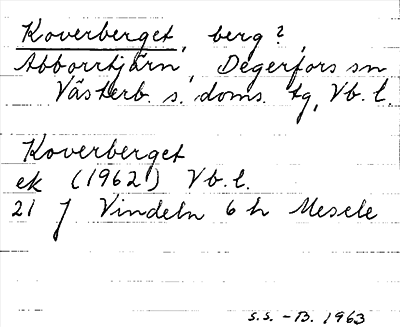 Koverberget, berg?,
Abborrtjärn, Degerfors sn
Västerb. s. doms. tg, Vb. l.
Koverberget
ek (1962) Vb. l.
21 J Vindeln 6 h Mesele
S.S. - B. 1963